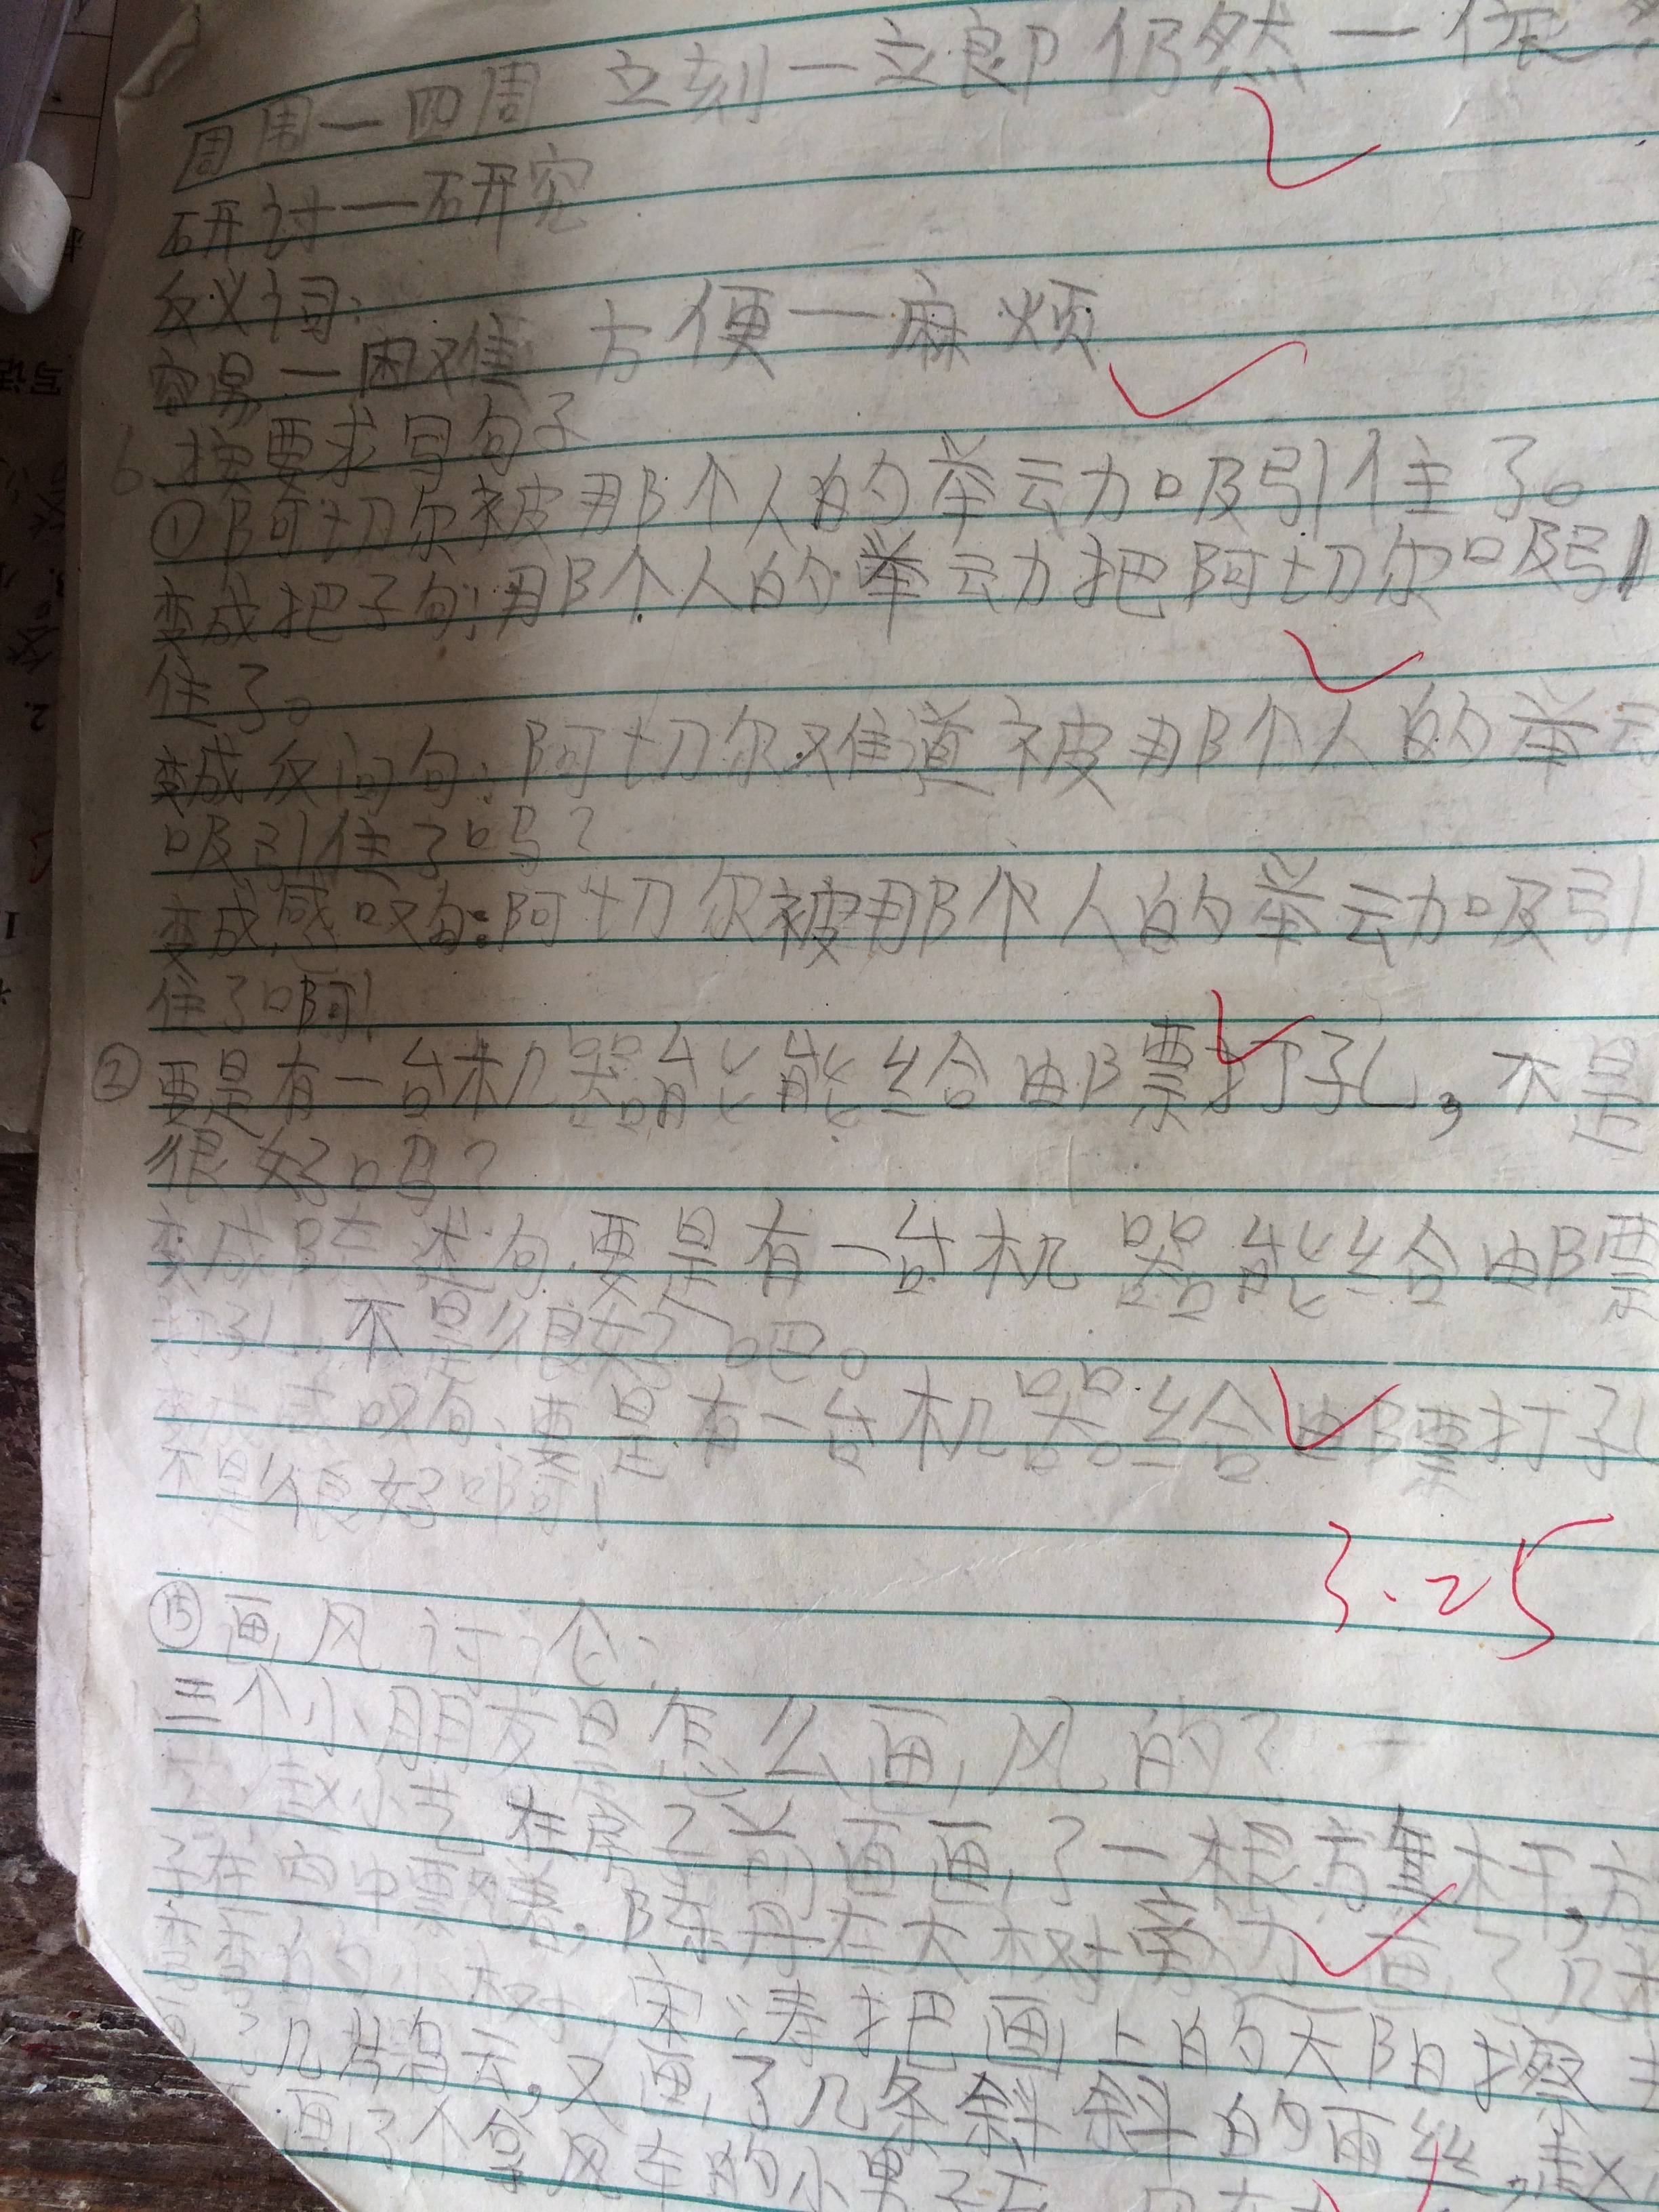 周围一四周 立刻一立即 仍然一依
研讨一研究
反义词:
容易一困难 方便一麻烦
6.按要求写句子
①阿切尔被那个人的举动吸引住了。
变成把子句:那个人的举动把阿切尔吸引
住了。
变成反问句:阿切尔难道被那个人的举动
吸引住了吗?
变成感叹句:阿切尔被那个人的举动吸引
住了啊!
②要是有一台机器能能给邮票打孔,不是
很好吗?
变成陈述句:要是有一台机器能给邮票
打孔,不是很好吧。
变成感叹句:要是有一台机器给邮票打孔
不是很好啊!
3.25
⑮画风讨论:
1三个小朋友是怎么画风的?
赵小艺在房子前面画了一根旗杆,
子在空中飘着。陈丹在大树旁边画了几
弯弯的小树。宋涛把画上的太阳擦
画了几片乌云,又画了几条斜斜的雨丝。赵
画了个拿风车的小男孩